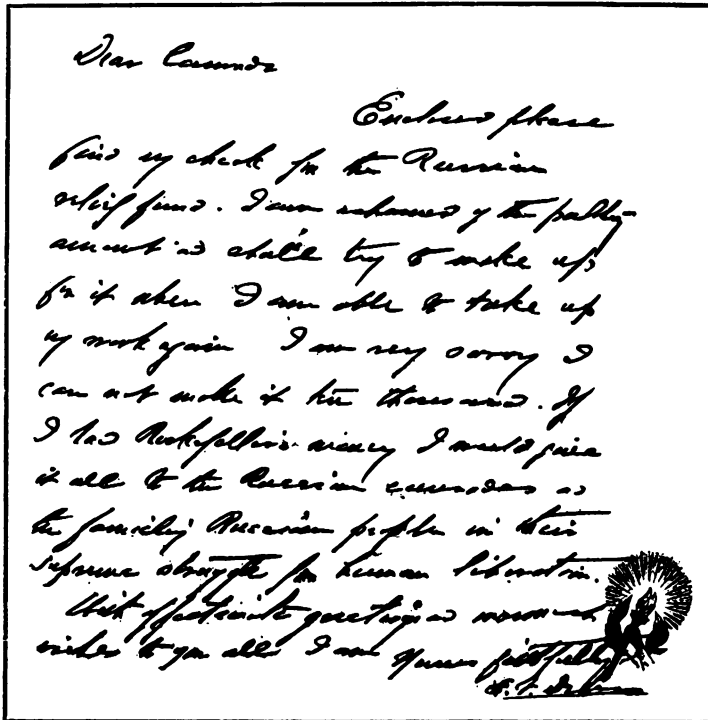 Dear Comrade
Enclosed please
find my check for the Russian
relief fund. I am ashamed of the paltry
amount and shall try to make up
for it when I am able to take up
my work again I am very sorry I
can not make it ten thousand. If
I had Rockefeller's money I would give
it all to the Russian comrades and
the famishing Russian people in their
supreme struggle for human liberation.
With affectionate greetings and warmest
wishes to you all I am Yours faithfully
E. V. Debs